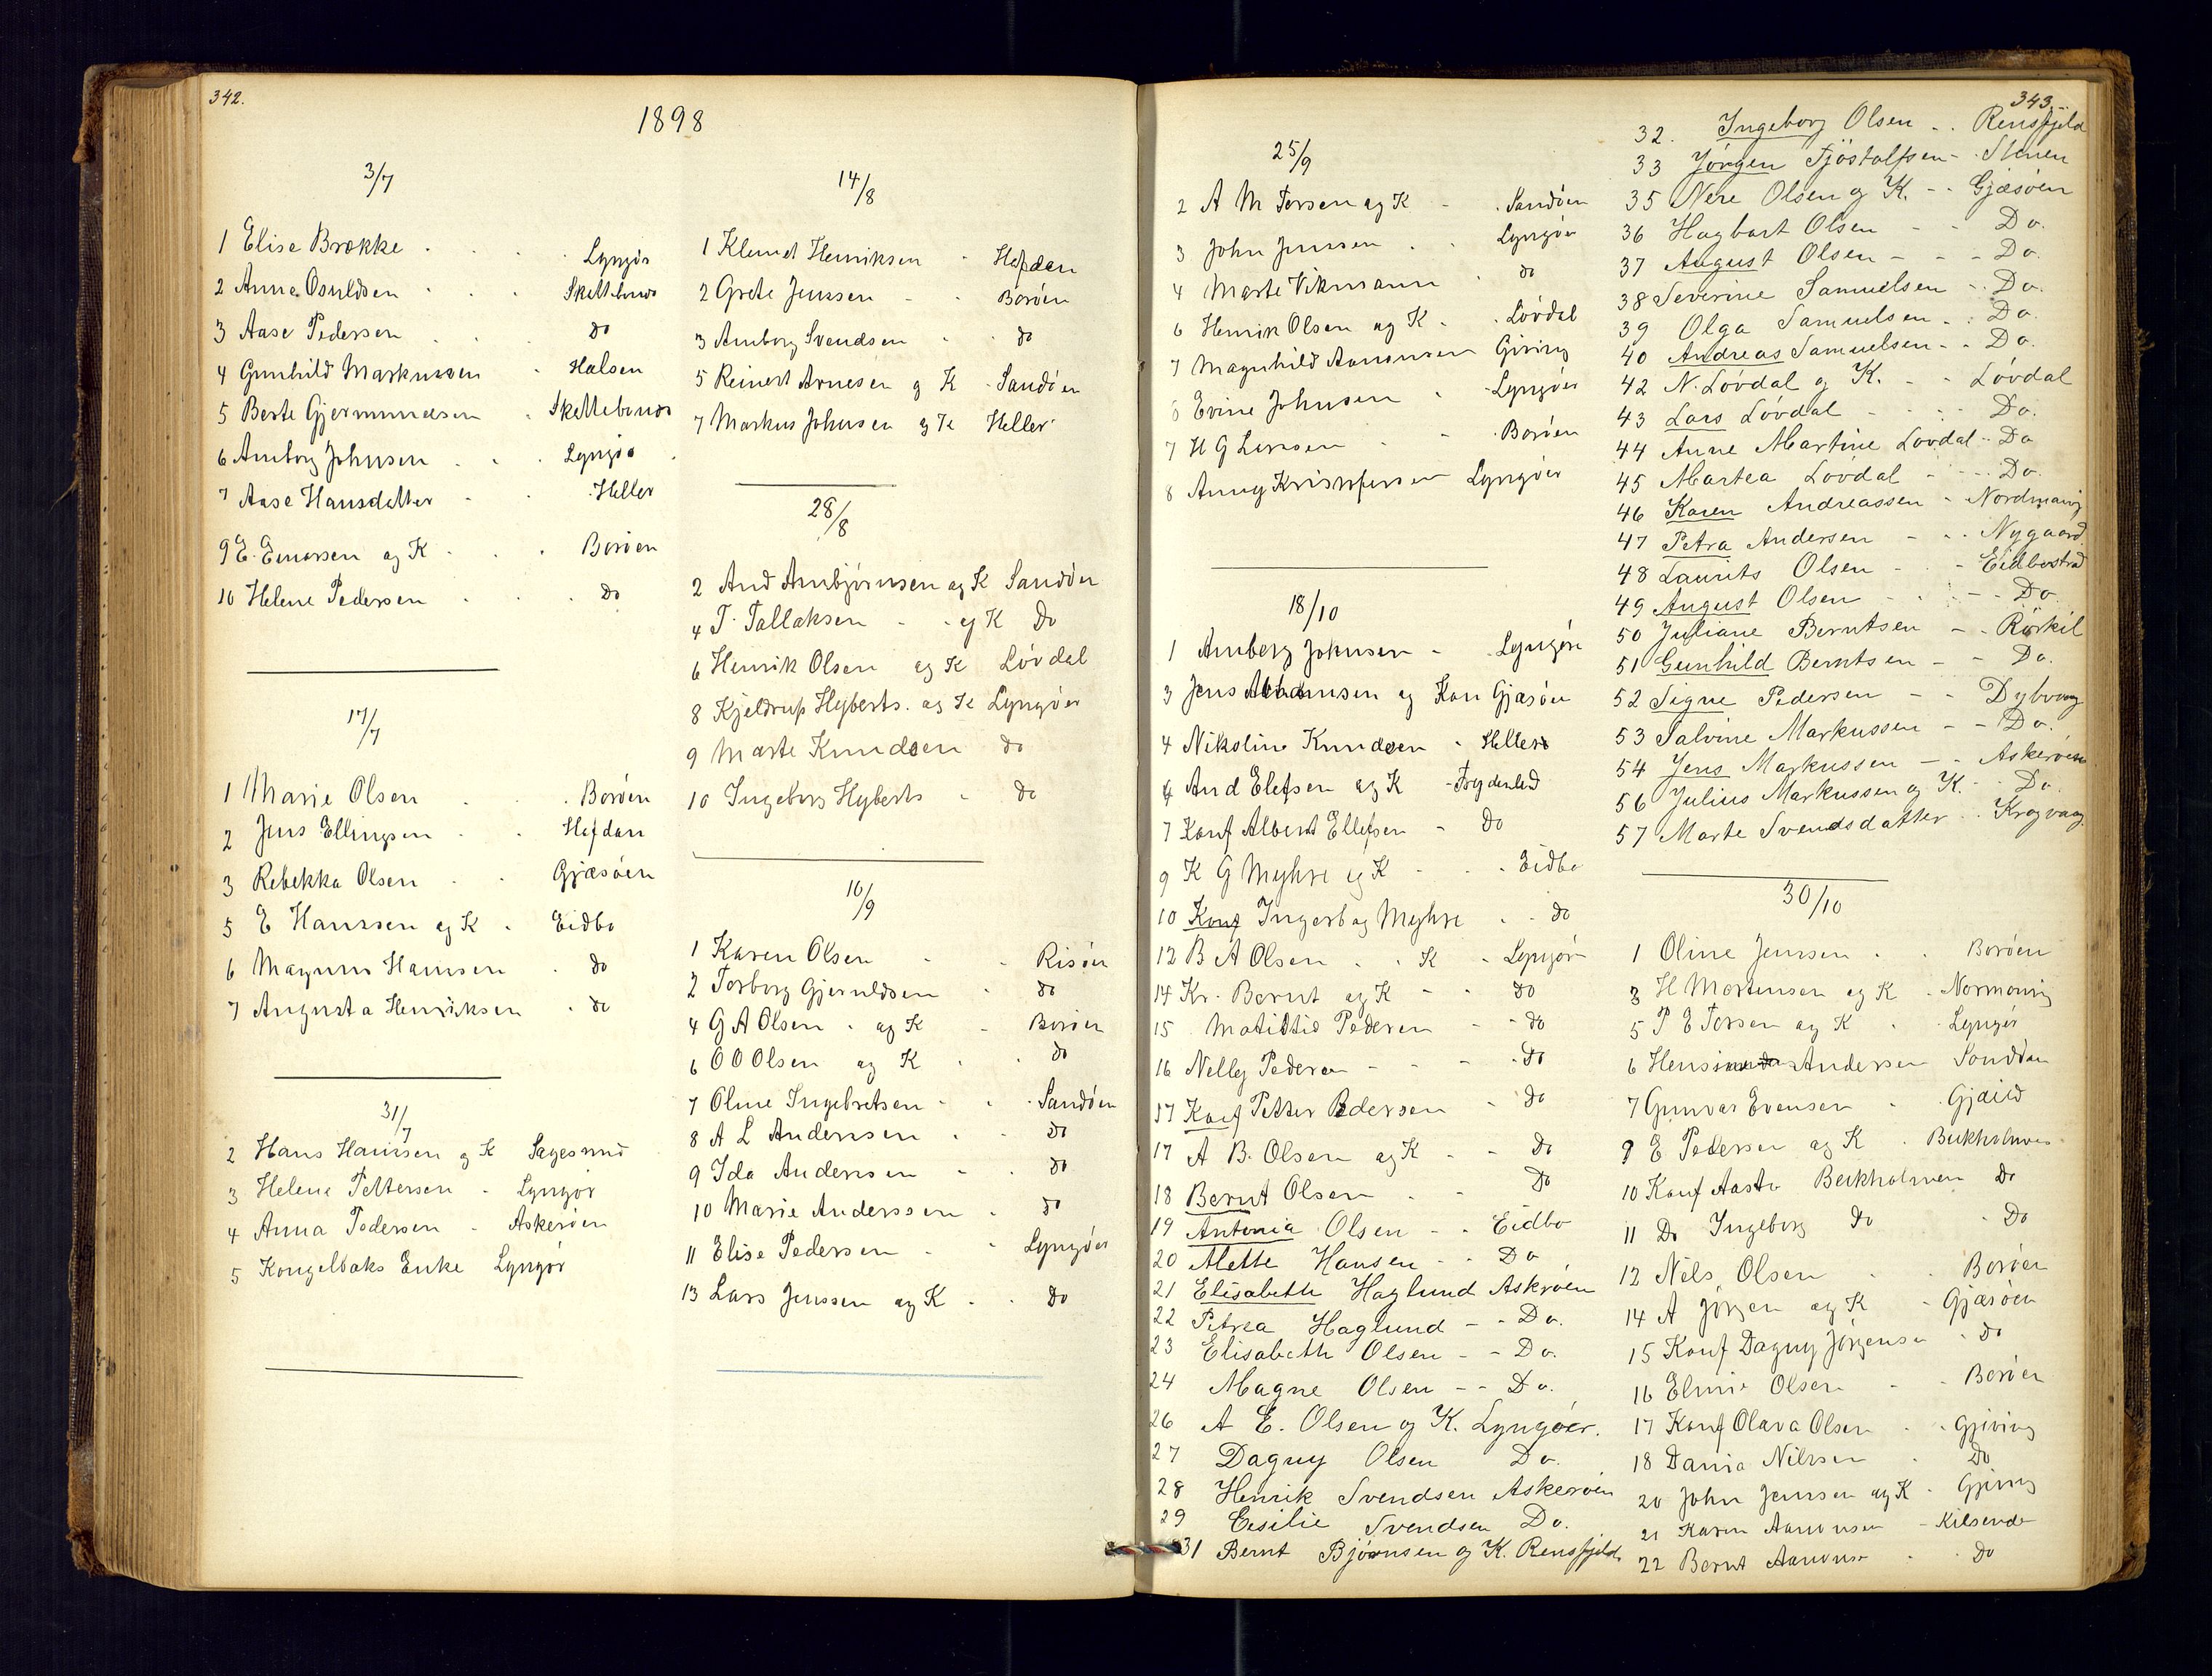 342.
1898
3/7
1 Elise Brække . . . Lyngør
2 Anne Osuldsen . . . Skettebunds
3 Aase Pedersen . . . do
4 Gunhild Markussen . Halsen
5 Berte Gjermundsen . Skettebunds
6 Amborg Johnsen . . . Lyngør
7 Aase Hansdatter - . Heller
9 E. Enarsen og K . . . Borøen
10 Helene Pedersen . . . do
17/7
1 Marie Olsen . . . Borøen
2 Jens Ellingsen . . Hafdan
3 Rebekka Olsen . . Gjæsøen
5 E Hanssen og K . Eidbo
6 Magnus Hansen . do
7 Augusta Henriksen . do
31/7
2 Hans Hanssen g K Sagesund
3 Helene Pettersen - Lyngør
4 Anna Pedersen - Askerøen
5 Kongelbaks Enke Lyngør
14/8
1 Klemet Henriksen - Hafdan
2 Grete Jenssen - - Borøen
3 Amborg Svendsen - - do
5 Reinert Arnesen g K - Sandøen
7 Markus Johnsen og K Heller
28/8
2 And Arnbjørnsen og K Sandøen
4 T. Tallaksen - - og K Do
6 Henrik Olsen og K Løvdal
8 Kjeldrup Hyberts. og K Lyngøer
9 Marte Knudsen do
10 Ingeborg Hyberts - do
10/9
1 Karen Olsen - - Risøer
2 Torborg Gjeruldsen - do
4 G A Olsen . og K - Borøen
6 O O Olsen og K . . do
7 Oline Ingebretsen - . . Sandøen
8 A L Anderssen . . do
9 Ida Anderssen - . do
10 Marie Anderssen - do
11 Elise Pedersen - - Lyngøer
13 Lars Jenssen og K . . Do
343.
25/9
2 A M Torsen og K - . Sandøen
3 John Jenssen . . Lyngøer
4 Marte Vikmann . do
6 Henrik Olsen og K . . Løvdal
7 Magnhild Aanonsen Giving
6 Evine Johnsen . - Lyngøer
7 H G Larsen - - . Borøen
8 Anny Kristofersen Lyngøer
18/10
1 Amberg Johnsen - . Lyngøer
3 Jens og Kon Gjæsøen
4 Nikoline Knudsen - Heller
6 And Elefsen og K - Frydenlund
7 Konf Albert Ellefsen - Do
9 K G Myhre og K - . . Eidbo
10 Konf Ingeborg Myhre . - do
12 B A Olsen . . K - Lyngør
14 Kr. Bernt og K - - do
15 Matidtie Pedersen - - do
16 Nelly Pedersen - - - . do
17 Konf Petter Pedersen - do
17 A B. Olsen og K - - Do
18 Bernt Olsen . - Do
19 Antonia Olsen - - Eidbo
20 Alette Hansen - - Do
21 Elisabeth Haglund Askrøen
22 Petrea Haglund - - Do.
23 Elisabeth Olsen - - Do.
24 Magne Olsen - - Do.
26 A E. Olsen og K. Lyngøer.
27 Dagny Olsen Do.
28 Henrik Svendsen Askerøen
29 Cesilie Svendsen Do.
31 Bernt Bjørnsen og K. Rensfjeld
32. Ingeborg Olsen - . Rensfjeld
33 Jørgen Tjøstolfsen - . Stenen
35 Nere Olsen og K. - - Gjæsøen
36 Hagbart Olsen - - Do.
37 August Olsen - - - Do.
38 Severine Samuelsen - . Do.
39 Olga Samuelsen - . Do.
40 Andreas Samuelsen - - Do.
42 N. Løvdal og K. - - Løvdal
43 Lars Løvdal - - - - Do.
44 Anne Martine Løvdal - - Do
45 Martea Løvdal - - - Do.
46 Karen Andreassen - Nordmanig
47 Petra Andersen - - . Nygaard
48 Laurits Olsen - - Eidbostrad
49 August Olsen - - - - Do
50 Juliane Berntsen - - . Rørkil
51 Gunhild Berntsen - - Do.
52 Signe Pedersen - - Dybvaag
53 Salvine Markussen - - Do.
54 Jens Markussen - - Askerøen
56 Julius Markussen og K. - Do.
57 Marte Svendsdatter . . Kragvaag
30/10
1 Oline Jenssen . . Borøen
3 H Mortensen og K - Normanig
5 P E Torsen og K . . Lyngør
6 Andersen Sanddøen
7 Gunvar Evensen . . Gjæild
9 E Pedersen og K . Birkholmen
10 Konf Aasta Birkholmen Do
11 Do Ingeborg Do - Do
12 Nils Olsen . - Borøen
14 A Jørgen og K - Gjæsøen
15 Konf Dagny Jørgensen . do
16 Elmie Olsen - - Borøen
17 Konf Olava Olsen . - Gjiving
18 Dania Nilssen . Do
20 John Jenssen og K . Gjiving
21 Karen Aanonsen - Kilsende
22 Bernt Aanonsen . do